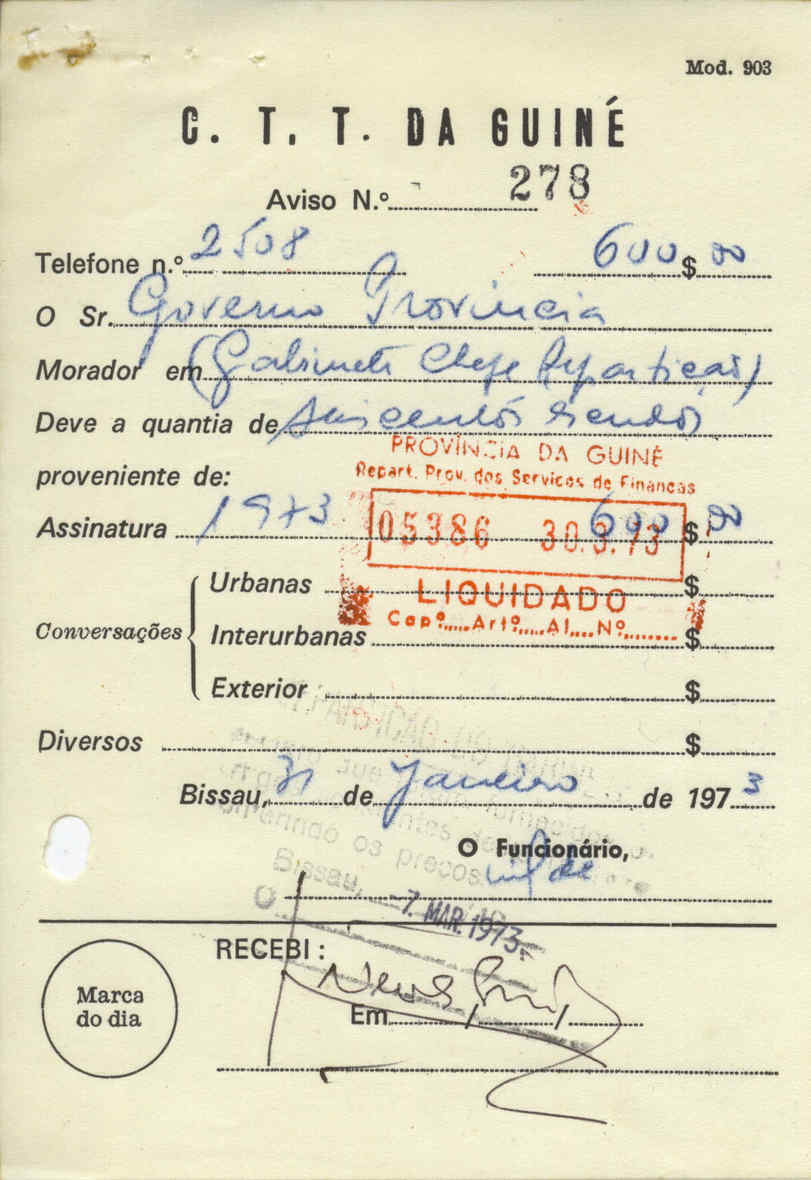 Mod. 903
C. T. T. DA GUINÉ
Aviso N.º 278
Telefone n.º 2508 600 $ 00
O Sr. Governo Provincia
Morador em (Gabinete Chefe Repartição)
Deve a quantia de seiscentos escudos
PROVÍNCIA DA GUINÉ
proveniente de:
Repart. Prov. dos Serviços de Finanças
Assinatura 1973 600 $ 00
05386 30.3.73
Urbanas $
LIQUIDADO
Conversações
Interurbanas $
Cap.º Artº Al. Nº
Exterior $
Diversos $
Bissau, 31 de Janeiro de 1973
O Funcionário,
os preços
Bissau,
-7. MAR. 1973
O
RECEBI:
Marca
do dia
Em / /